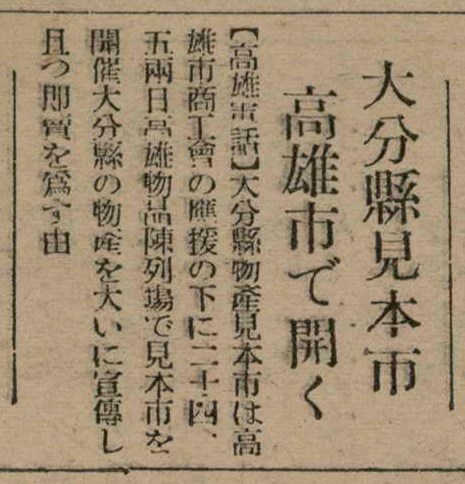 大分縣見本市
高雄市で開く
【高雄電話】大分縣物產見本市は高
雄市商工會の應援の下に二十四、
五兩日高雄物品陳列場で見本市を
開催大分縣の物產を大いに宣傳し
且つ即賣を爲す由